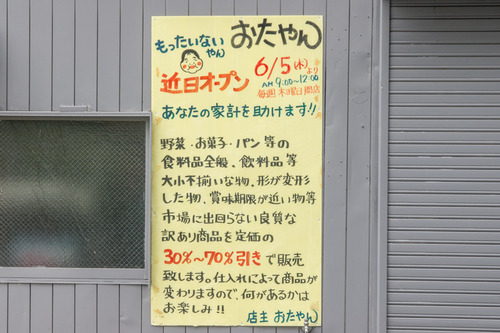 もったいないやん
おたやん
近日オープン
6/5(木)より
AM 9:00〜12:00
毎週木曜日開店
あなたの家計を助けます!!
野菜・お菓子・パン等の
食料品全般、飲料品等
大小不揃いな物、形が変形
した物、賞味期限が近い物等
市場に出回らない良質な
訳あり商品を定価の
30%〜70%引きで販売
致します。仕入れによって商品が
変わりますので、何があるかは
お楽しみ!!
店主 おたやん